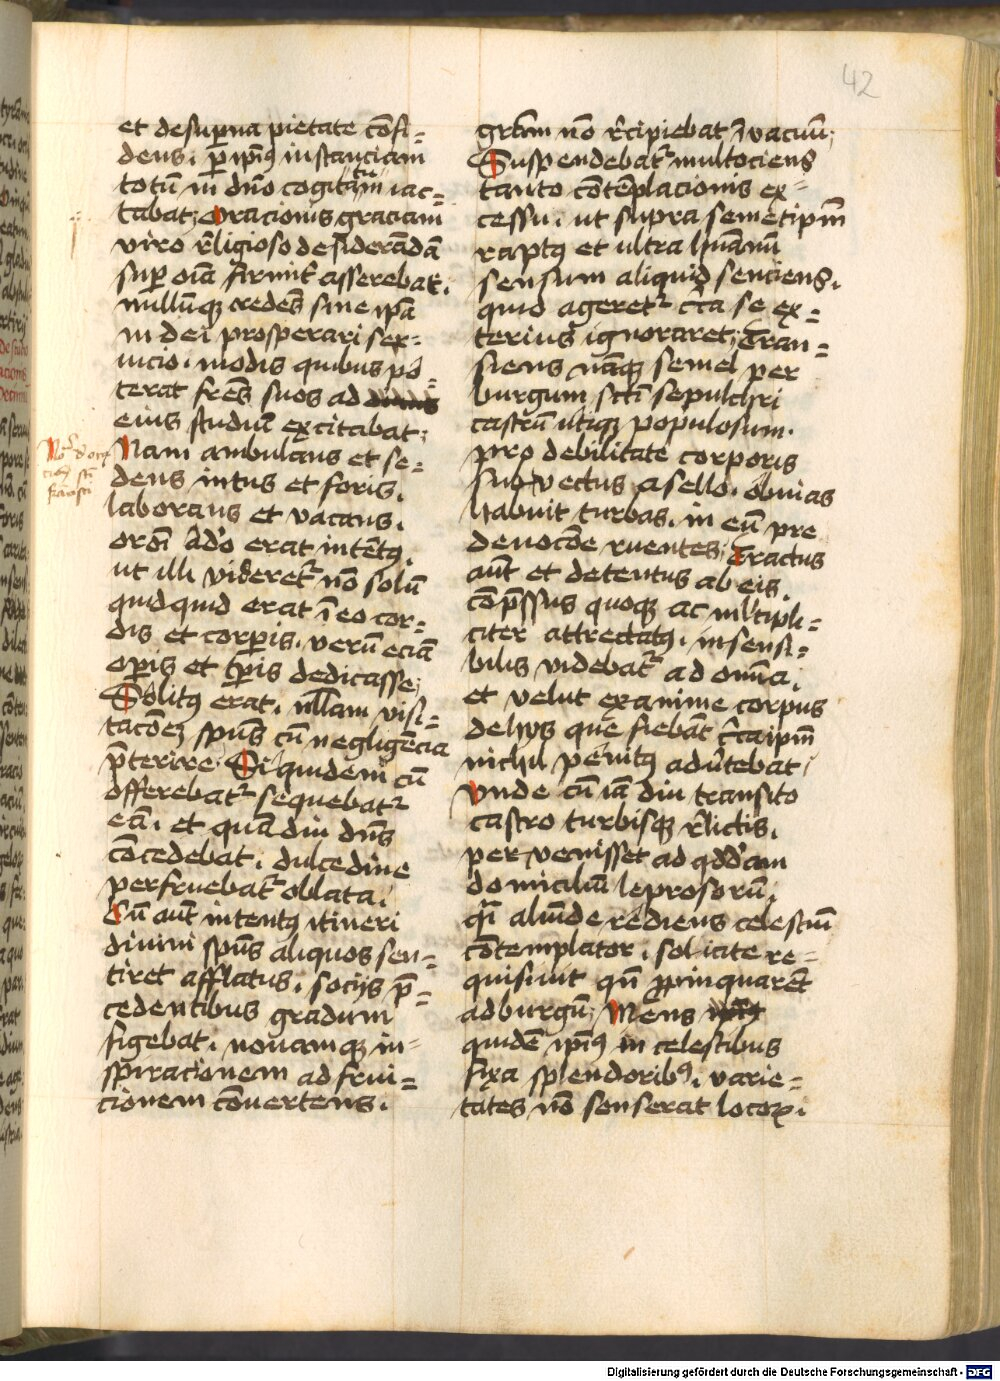 42
et desuperna pietate cōfi=
dens. p̄ ip̄iꝰ instanciam
totū in dn̄o cogitatum iac=
tabat; oracionis graciam
viro r̄ligioso desiderādā
suꝑ oīa firmit̄ asserebat.
nullūqꝫ credēs sine ipā
in dei prosperari ser=
uicio. modis quibus po=
terat fr̄es suos ad
eius studiū excitabat;
Nam ambulans et se=
dens intus et foris.
laborans et vacans.
orōi ādō erat intētꝰ.
ut illi videretᷣ nō solū
quidquid erat ī eo cor=
dis et corꝑis. verū eciā
oꝑis et tꝑis dedicasse;
Solitꝰ erat. nll̄am visi=
tacōeꝫ spūs cū negligēcia
p̄terire. Siquidem cū
offerebatᷣ sequebatᷣ
eā. et quādiu dn̄s
cōcedebat. dulcedine
perfruebatᷣ oblata.
Cū aūt intentꝰ itineri
divini spūs aliquos sen=
tiret afflatus. socijs p̄=
cedentibus gradum
figebat. nouamqꝫ in=
spiracionem ad frui=
cionem cōuertens.
grām nō r̄cipiebat ī vacuū;
Suspendebatᷣ multociens
tanto cōtēplacionis ex=
cessu. ut supra semetip̄m
raptꝰ et ultra hūanū
sensum aliquid senciens.
quid ageretᷣ c̄ca se ex=
terius ignoraret; Tran=
siens nāqꝫ semel per
burgum sc̄ti sepulchri
castrū utiqꝫ populosum.
pro debilitate corporis
subvectus asello. obuias
habuit turbas. in eū pre
deuocōe ruentes; Tractus
aūt et detentus ab eis.
cōp̄ssus quoqꝫ ac ml̄tipli=
citer attrectatꝰ. insensi=
bilis videbatᷣ ad omīa.
et velut exanime corpus
dehijs que fiebāt c̄ca ip̄m
nichil penitꝰ aduertebat.
Vnde cū iā diu transito
castro turbisqꝫ r̄lictis.
per venisset ad qdd̄am
domiciliū leprosorū.
qͣi aliūde rediens celestiū
cōtemplator. solicite re=
quisiuit qn̄ ꝓpinquarēt
ad burgū; Mens
quidē ip̄iꝰ in celestibus
fixa splendoribꝰ. varie=
tates nō senserat locoꝝ.
Digitalisierung gefördert durch die Deutsche Forschungsgemeinschaft - DFG